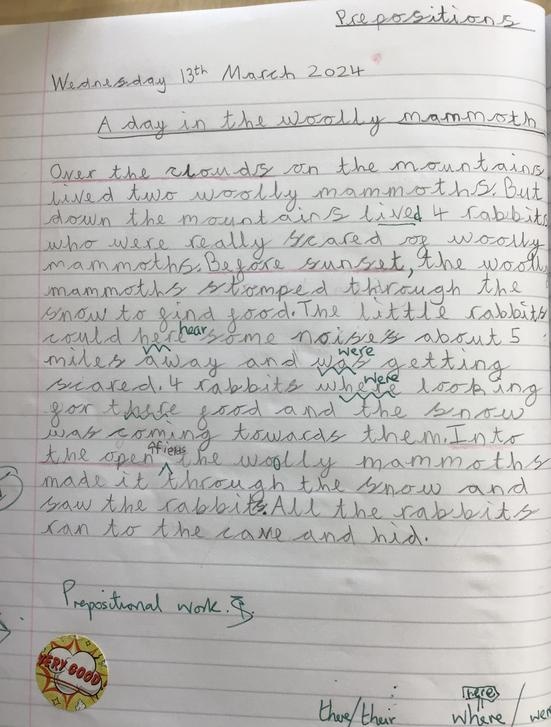 Prepositions
Wednesday 13th March 2024
A day in the woolly mammoth
Over the clouds on the mountains
lived two woolly mammoths. But
down the mountains lived 4 rabbits
who were really scared of woolly
mammoths. Before sunset, the woolly
mammoths stomped through the
snow to find food. The little rabbits
could here hear some noises about 5
were
miles away and was getting
were
scared. 4 rabbits where looking
for food and the snow
was coming towards them. Into
the open the woolly mammoths
made it through the snow and
saw the rabbits. All the rabbits
ran to the cave and hid.
Prepositional work.
VERY GOOD
here
there/their where / were